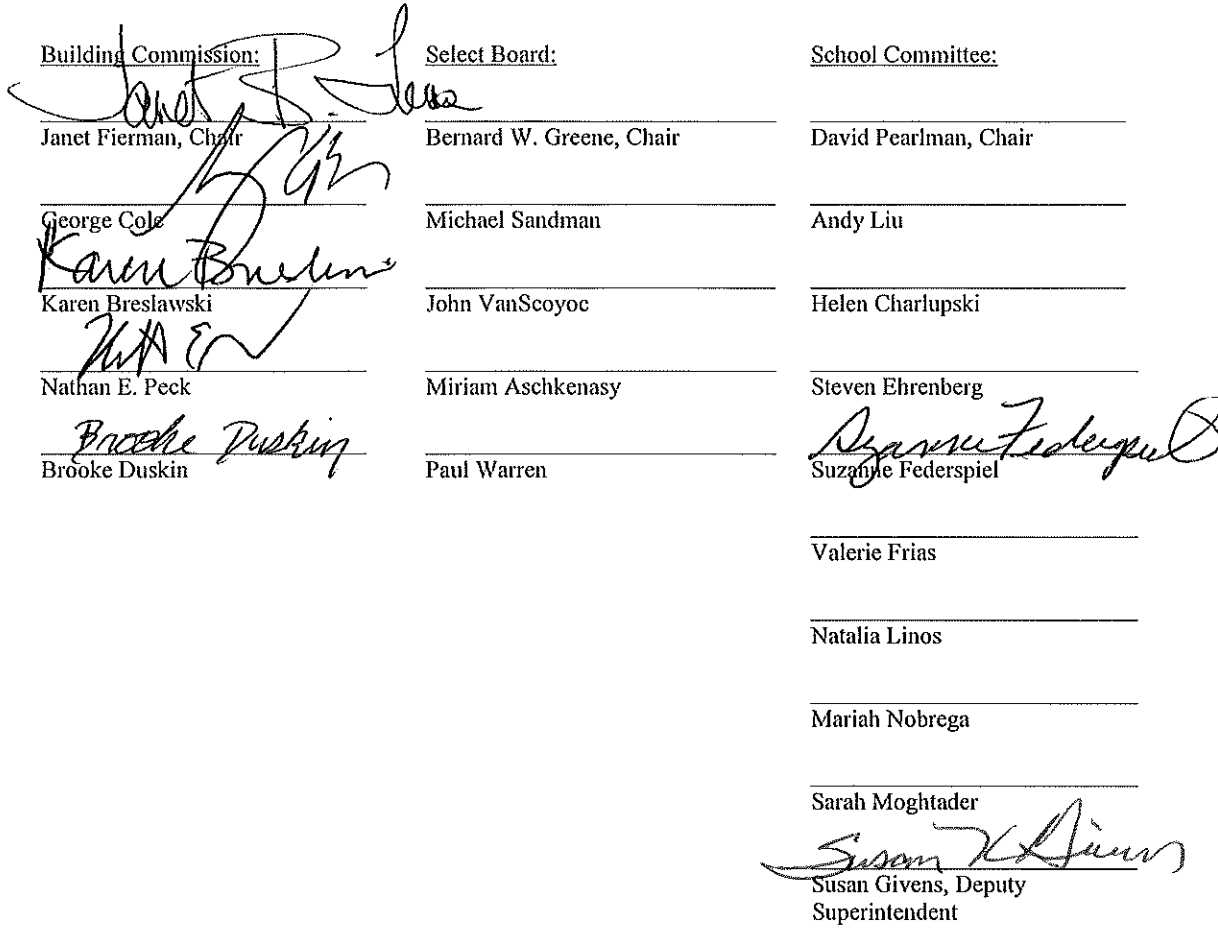 Building Commission:
Janet B. Fierman
Janet Fierman, Chair
George Cole
Karen Breslawski
Karen Breslawski
Nathan E. Peck
Brooke Duskin
Brooke Duskin
Select Board:
Bernard W. Greene, Chair
Michael Sandman
John VanScoyoc
Miriam Aschkenasy
Paul Warren
School Committee:
David Pearlman, Chair
Andy Liu
Helen Charlupski
Steven Ehrenberg
Suzanne Federspiel
Suzanne Federspiel
Valerie Frias
Natalia Linos
Mariah Nobrega
Sarah Moghtader
Susan K Givens
Susan Givens, Deputy
Superintendent